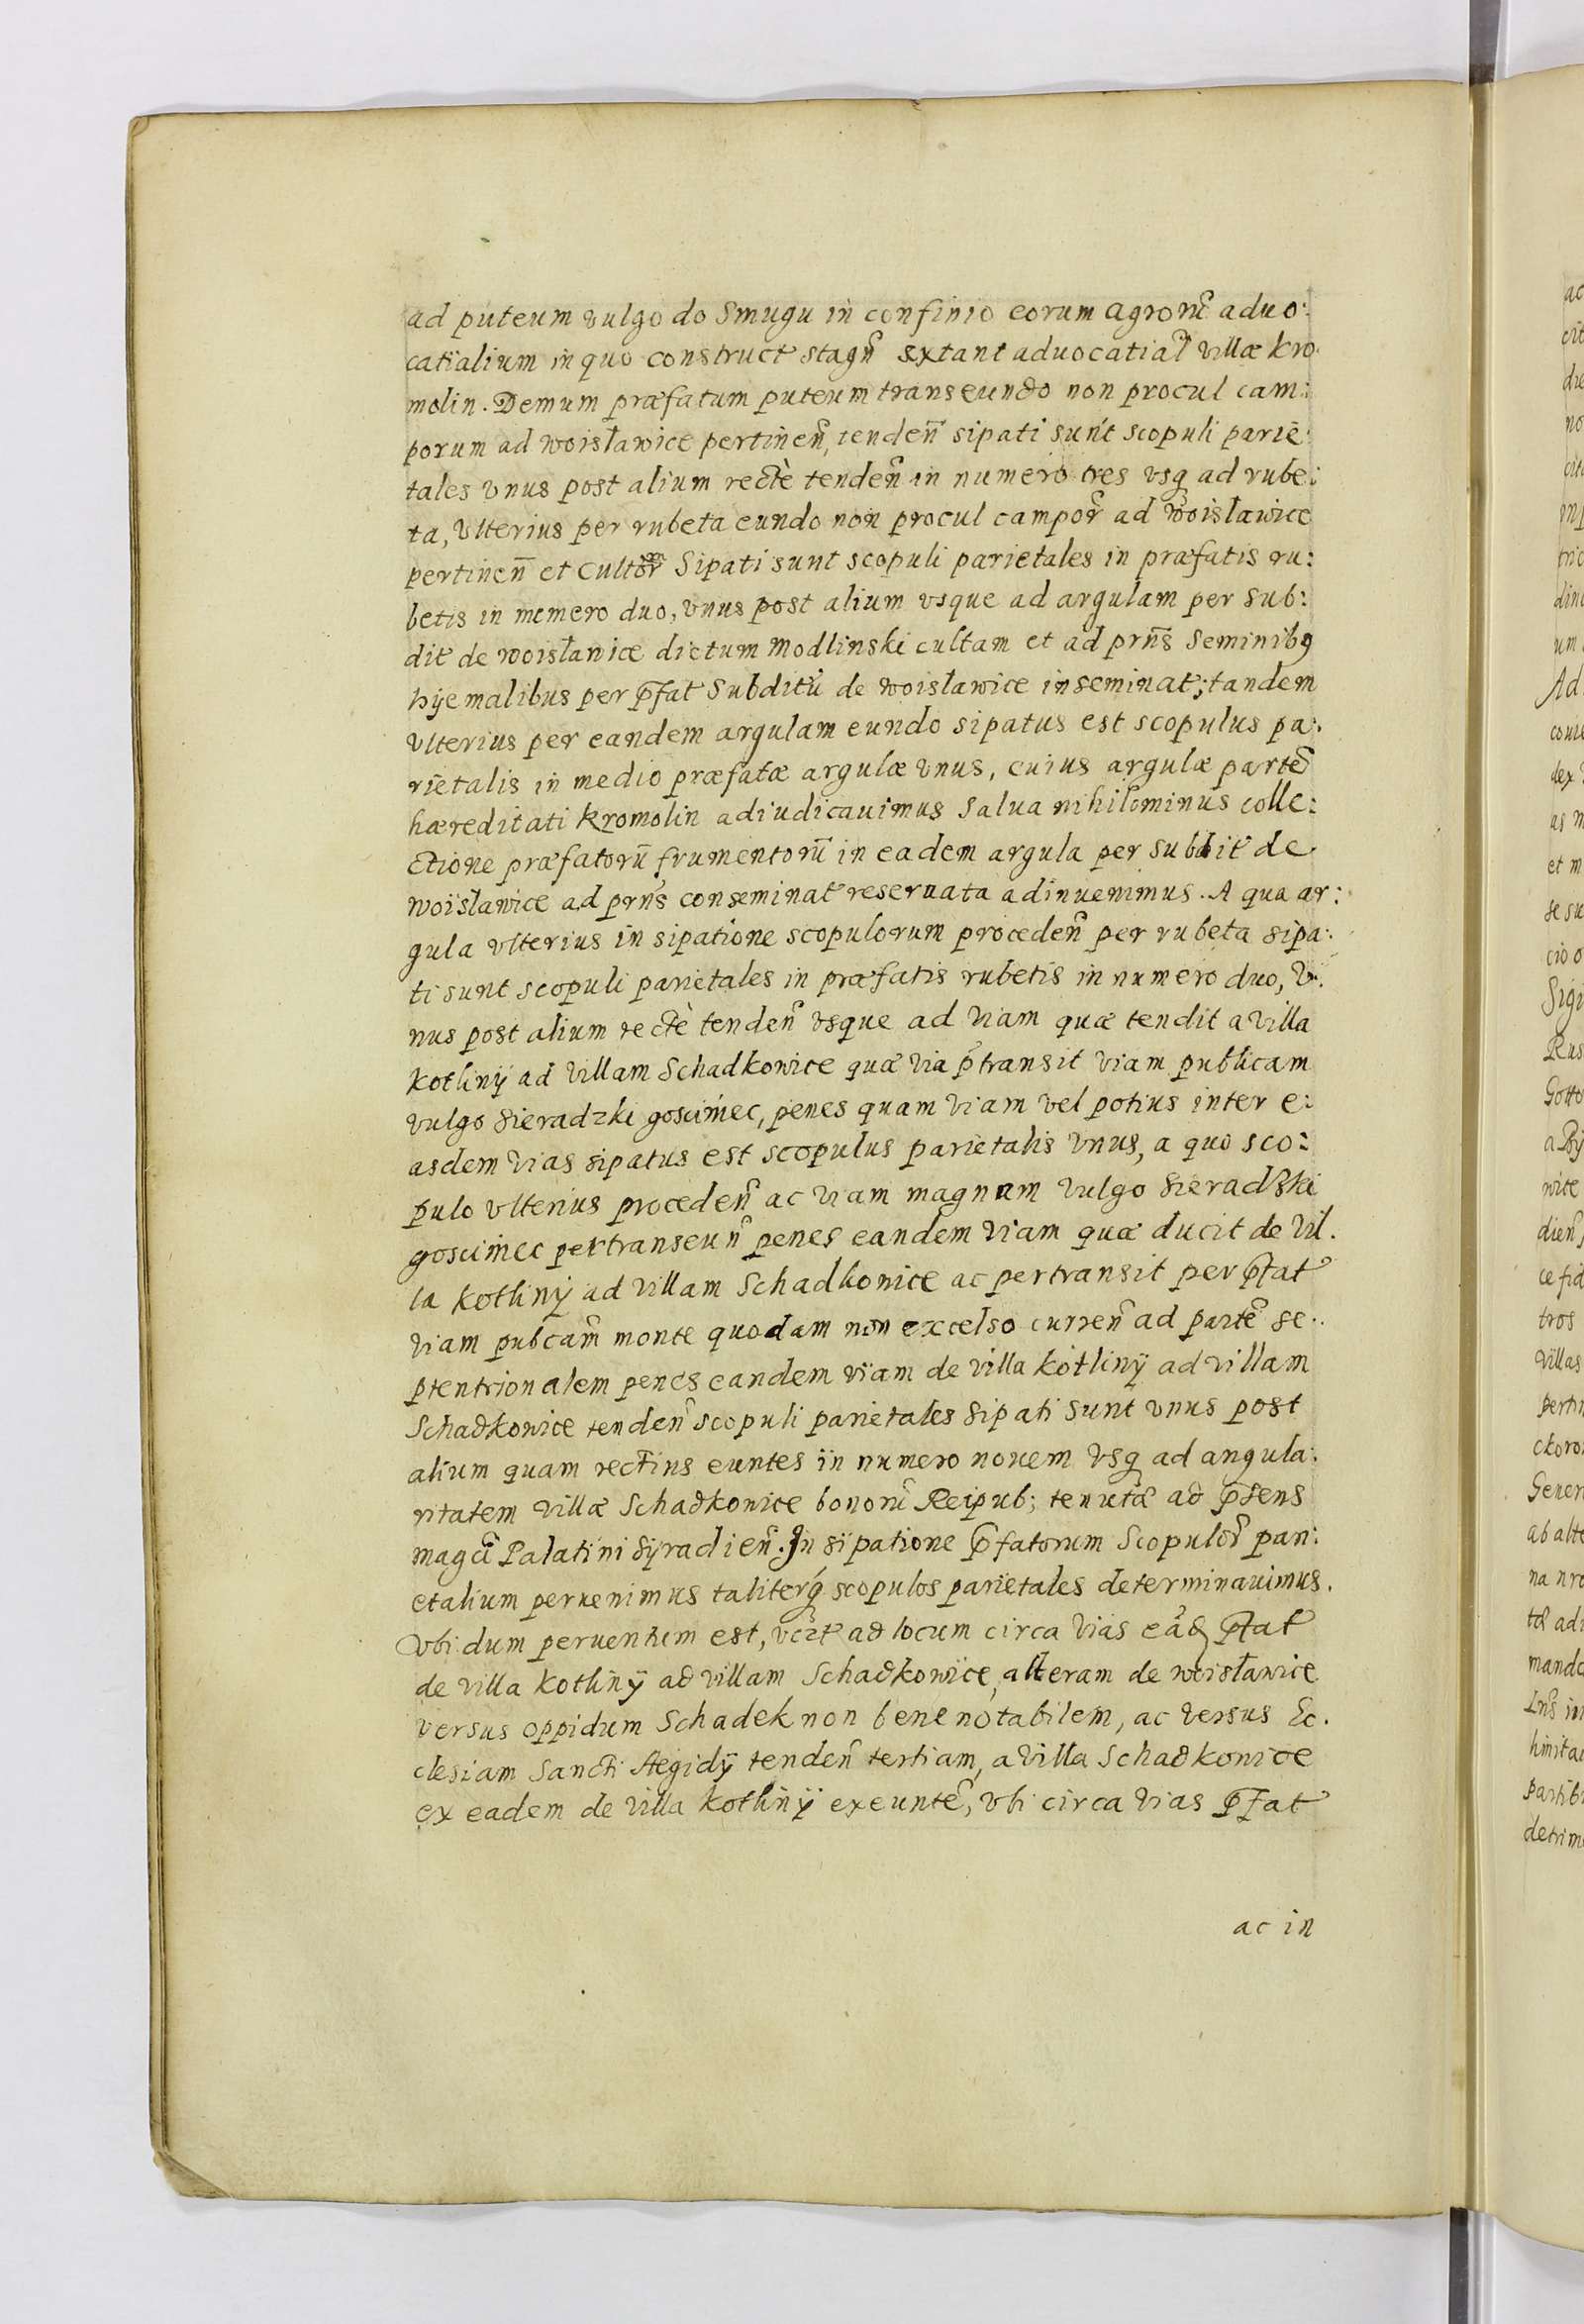 ad puteum vulgo do Smugu in confinio eorum agrorũ aduo:
catialium in quo construct stagñ extant aduocatial villæ kro.
molin. Demum præfatum puteum transeundo non procul cam:
porum ad woisławice pertineñ, tendeñ sipati sunt scopuli parie
tales vnus post alium rectè tendeñ in numero tres vsq ad rube:
ta, vlterius per rubeta eundo non procul campor ad woisławice
pertineñ et cultor Sipati sunt scopuli parietales in præfatis ru:
betis in numero duo, vnus post alium vsque ad argulam per sub:
dit de woisławice dictum Modlinski cultam et ad prñs seminibꝯ
hÿemalibus per p̃fat subditũ de woisławice inseminat; tandem
vlterius per eandem argulam eundo sipatus est scopulus pa:
rietalis in medio præfatæ argulæ vnus, cuius argulæ parte
hæreditati kromolin adiudicauimus salua nihilominus colle:
ctione præfatorũ frumentorũ in eadem argula per subdit de
woisławice ad prñs conseminat reseruata adinuenimus. A qua ar:
gula vlterius in sipatione scopulorum procedeñ per rubeta sipa:
ti sunt scopuli parietales in præfatis rubetis in numero duo, v:
nus post alium rectè tendeñ vsque ad viam quæ tendit a villa
kotlinÿ ad villam Schadkowice quæ via p̃transit viam publicam
vulgo sieradzki goscinec, penes quam viam vel potius inter e:
asdem vias sipatus est scopulus parietalis vnus, a quo sco:
pulo vlterius procedeñ ac viam magnam vulgo sieradzki
goscinec pertranseuñ penes eandem viam quæ ducit de vil.
la kotlinÿ ad villam Schadkowice ac pertransit per p̃fat
viam pubcam̃ monte quodam non excelso curreñ ad parte se..
ptentrionalem penes eandem viam de villa kotlinÿ ad villam
Schadkowice tendeñ scopuli parietales sipati sunt vnus post
alium quam rectius euntes in numero nouem vsq ad angula:
ritatem villæ Schadkowice bonorũ Reipub; tenutæ ad p̃sens
magci Palatini sÿradieñ. In sipatione p̃fatorum Scopulor pari:
etalium peruenimus taliterq scopulos parietales determinauimus.
vbi dum peruentum est, vczt ad locum circa vias eãd p̃fat
de villa kotlinÿ ad villam Schadkowice, alteram de woisławice
versus oppidum Schadek non bene notabilem, ac versus Ec.
clesiam Sancti Aegidÿ tendeñ tertiam, a villa Schadkowice
ex eadem de villa kotlinÿ exeunte, vbi circa vias p̃fat
ac in